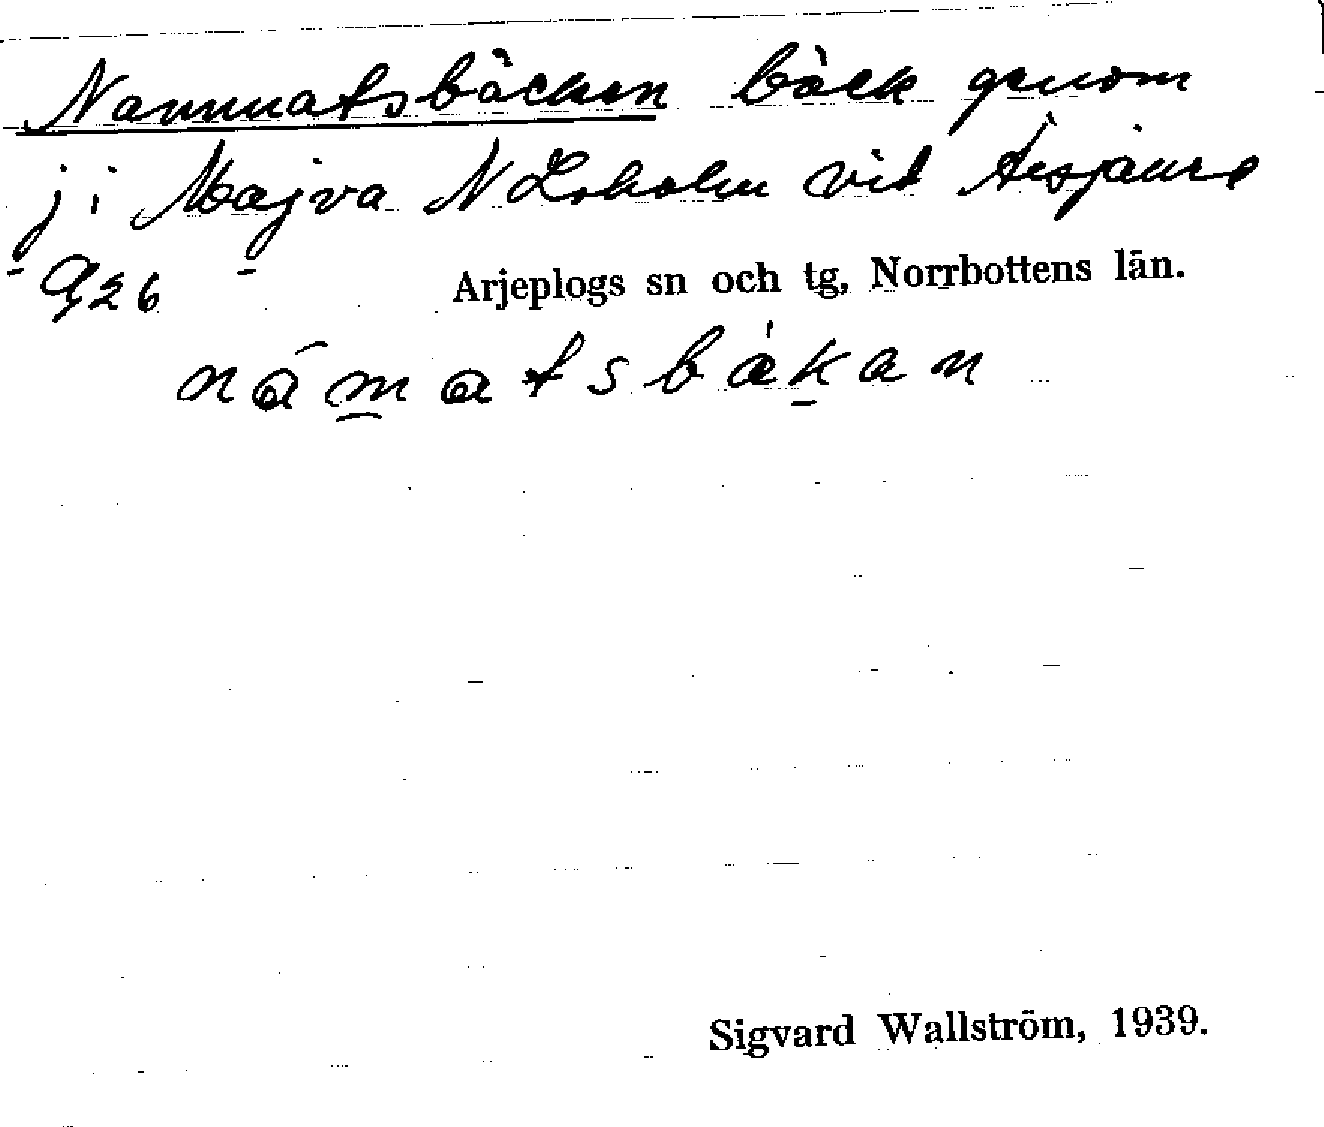 Nammatsbäcken bäck genom
j i Majva N Loholm vid Aisjaure
G26 Arjeplogs sn och tg, Norrbottens län.
námatsbäkan
Sigvard Wallström, 1939.